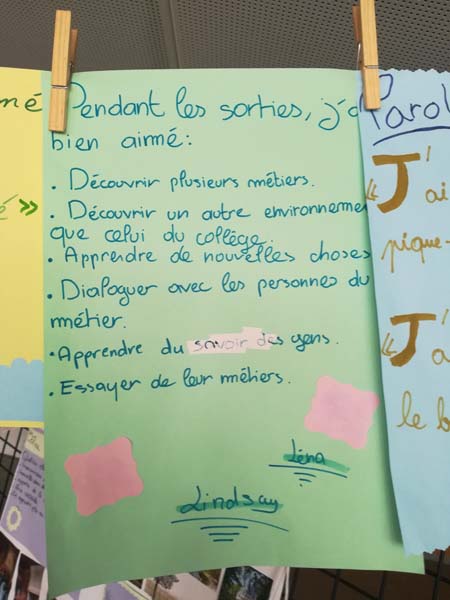 Pendant les sorties, j'a
bien aimé:
. Découvrir plusieurs métiers.
. Découvrir un autre environneme
que celui du collège.
. Apprendre de nouvelles choses
. Dialoguer avec les personnes du
métier.
. Apprendre du savoir des gens.
. Essayer de leur métiers.
Léna
Lindsay
mé
é »
Parol
« J'ai
pique-
« J'a
le b